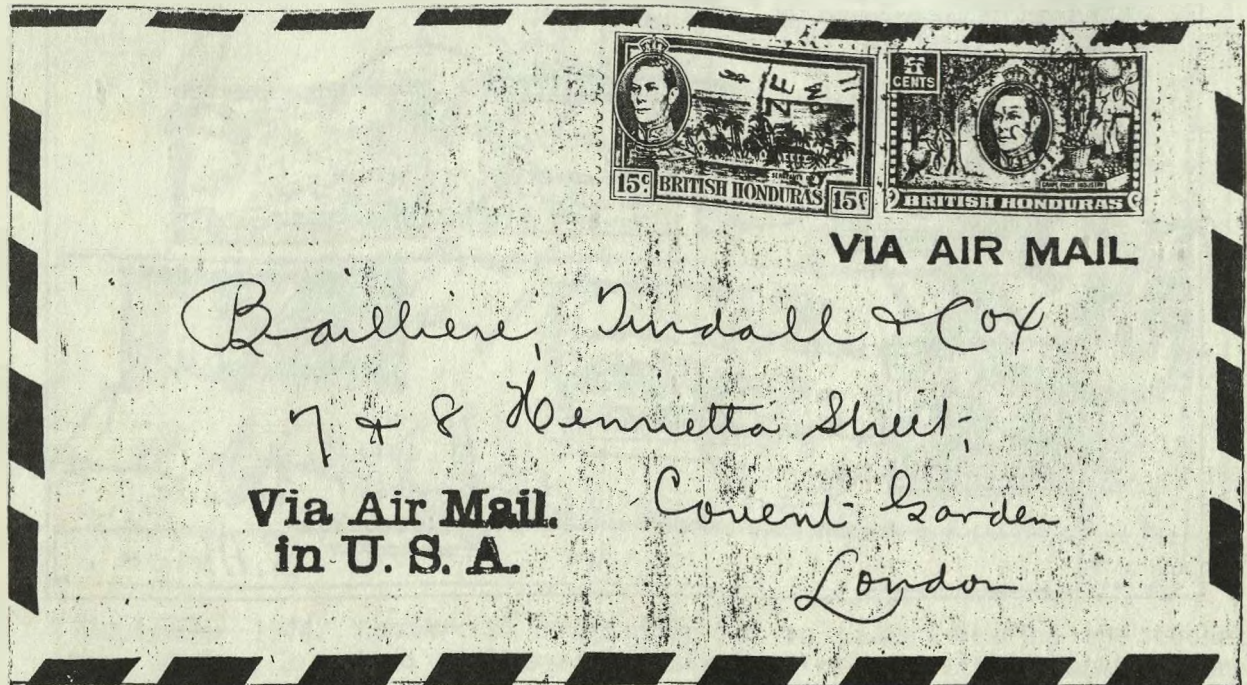 CENTS
15¢ BRITISH HONDURAS 15¢
BRITISH HONDURAS
VIA AIR MAIL
Bailliere, Tindall & Cox
7 & 8 Henrietta Street,
Covent Garden
London
Via Air Mail.
in U. S. A.